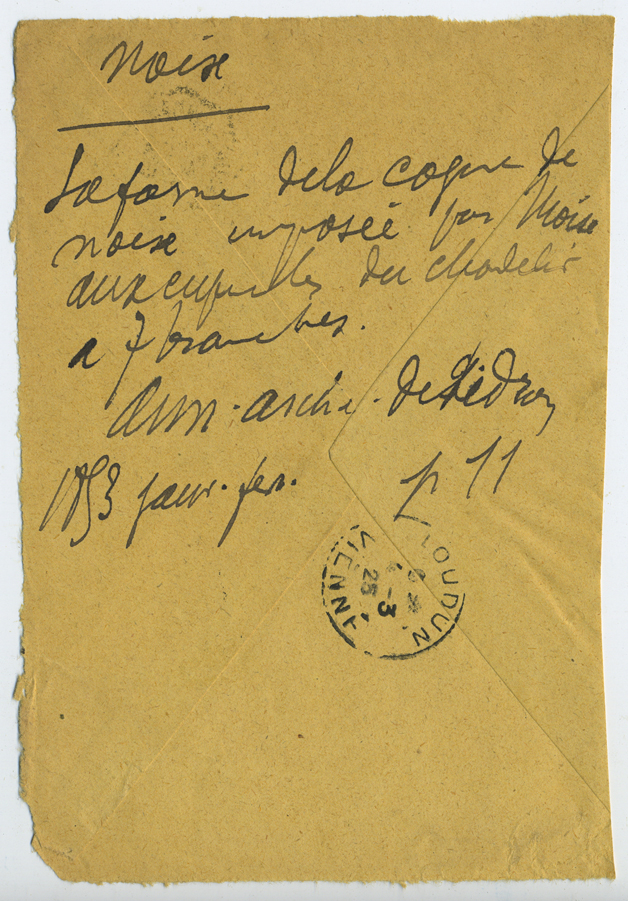 noix
La forme de la coque de
noix imposée par Moïse
aux coupelles du chandelier
a 7 branches.
Ann. arché. de Didron
1853 janv. fev.
p 11
LOUDUN
VIENNE
-3
25